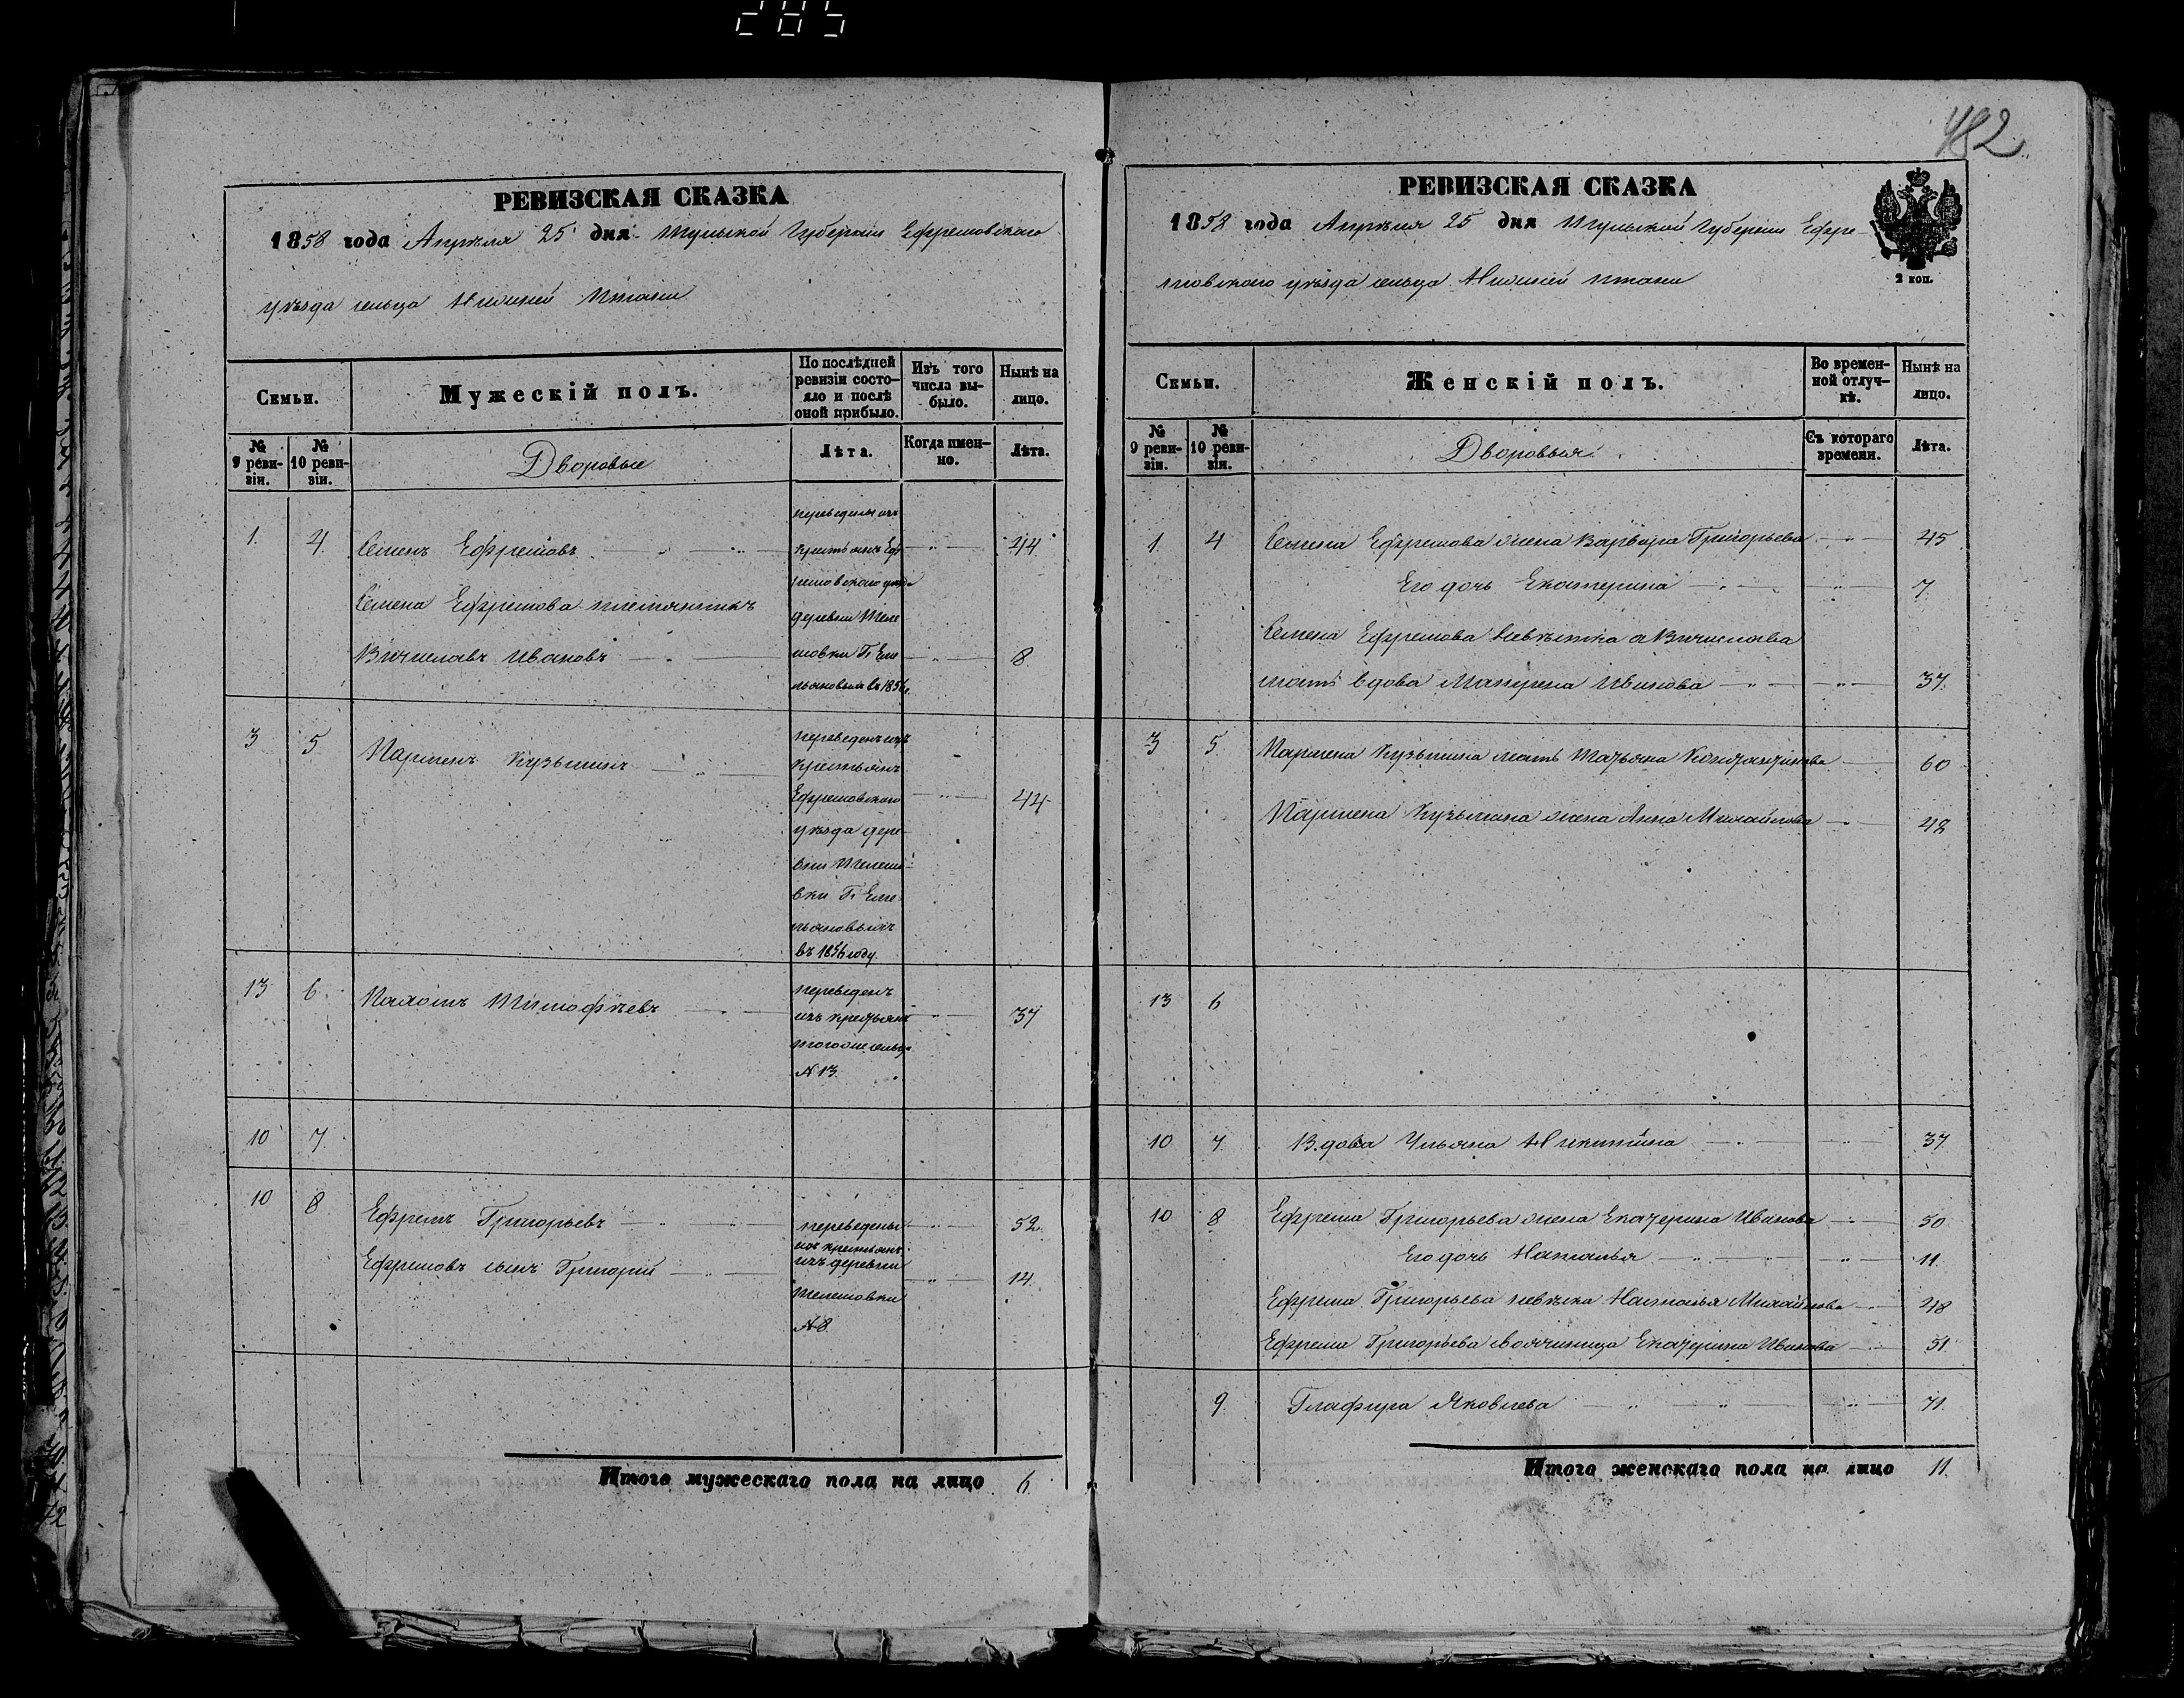 285
482
РЕВИЗСКАЯ СКАЗКА
1858 года Апрѣля 25 дня Тульской Губерніи Ефремовскаго
уѣзда сельца Нижней Итани
Семьи.
Мужескій полъ.
По послѣдней ревизіи состояло и послѣ оной прибыло.
Изъ того числа выбыло.
Нынѣ на лицо.
№ 9 ревизіи.
№ 10 ревизіи.
Дворовые
Лѣта.
Когда именно.
Лѣта.
1. 4. Семенъ Ефремовъ 44
Семена Ефремова племянникъ
Вичеславъ Ивановъ 8
переведены изъ
крестьянъ Еф
ремовскаго уѣзда
деревни Теле
шовки Г. Еме
льяновыхъ въ 1856
3 5 Парменъ Кузьминъ 44
переведенъ изъ
крестьянъ
Ефремовскаго
уѣзда дере-
вни Телешо-
вки Г. Еме
льяновыхъ
въ 1856 году.
13 6. Калистъ Тимофѣевъ 37
переведенъ
изъ крестьянъ
того же сельца
№ 13.
10 7.
10 8 Ефремъ Григорьевъ 52.
Ефремовъ сынъ Григорій 14.
переведены
изъ крестьянъ
изъ деревни
Телешовки
№ 8.
Итого мужескаго пола на лицо 6.
РЕВИЗСКАЯ СКАЗКА
1858 года Апрѣля 25 дня Тульской Губерніи Ефре-
мовскаго уѣзда сельца Нижней Итани
2 коп.
Семьи.
Женскій полъ.
Во временной отлучкѣ.
Нынѣ на лицо.
№ 9 ревизіи.
№ 10 ревизіи.
Дворовыя.
Съ котораго времени.
Лѣта.
1. 4 Семена Ефремова жена Варвара Григорьева 45
Его дочь Екатерина 7
Семена Ефремова невѣстка а Вичеслава
мать вдова Матрена Иванова 37.
3 5 Пармена Кузьмина мать Татьяна Кондратьева 60
Пармена Кузьмина жена Анна Михайлова 42
13 6
10 7. Вдова Ульяна Никитина 37
10 8 Ефрема Григорьева жена Екатерина Иванова 50
Его дочь Наталья 11.
Ефрема Григорьева невѣстка Наталья Михайлова 48
Ефрема Григорьева свояченица Екатерина Иванова 51.
9. Глафира Яковлева 71.
Итого женскаго пола на лицо 11.